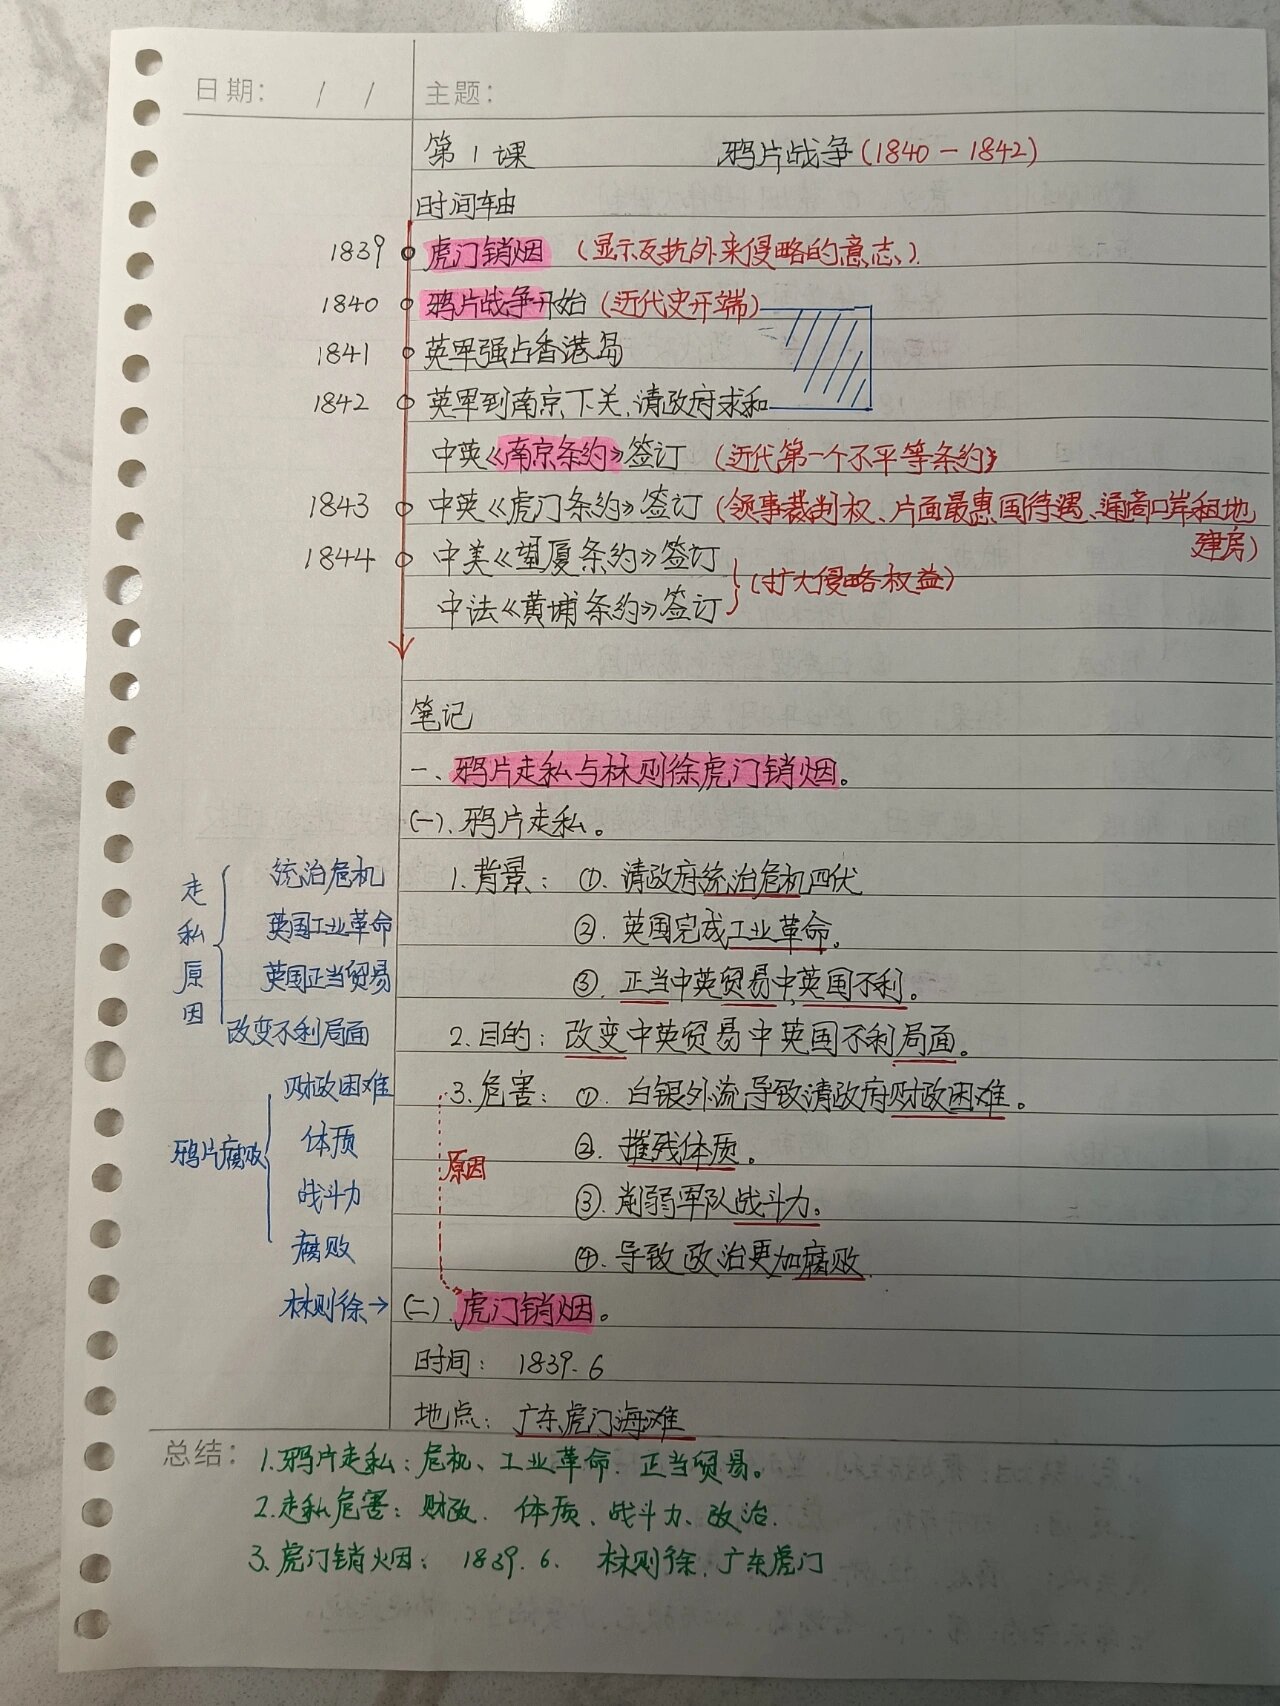 日期： / / 主题：
第1课 鸦片战争（1840－1842）
时间轴
1839 虎门销烟 （显示反抗外来侵略的意志）.
1840 鸦片战争开始（近代史开端）
1841 英军强占香港岛
1842 英军到南京下关,清政府求和
中英《南京条约》签订 （近代第一个不平等条约）
1843 中英《虎门条约》签订（领事裁判权、片面最惠国待遇、通商口岸租地
建房）
1844 中美《望厦条约》签订
（扩大侵略权益）
中法《黄埔条约》签订
笔记
一、鸦片走私与林则徐虎门销烟。
(一).鸦片走私。
走私原因
统治危机 1.背景：①.清政府统治危机四伏
英国工业革命 ②.英国完成工业革命.
英国正当贸易 ③.正当中英贸易中,英国不利。
改变不利局面 2.目的：改变中英贸易中英国不利局面。
财政困难 3.危害：①.白银外流导致清政府财政困难。
鸦片腐败 体质 原因 ②.摧残体质。
战斗力 ③.削弱军队战斗力。
腐败 ④.导致政治更加腐败
林则徐→ (二).虎门销烟。
时间：1839.6
地点：广东虎门海滩
总结：1.鸦片走私：危机、工业革命.正当贸易。
2.走私危害：财政.体质、战斗力、政治.
3.虎门销烟：1839.6. 林则徐.广东虎门